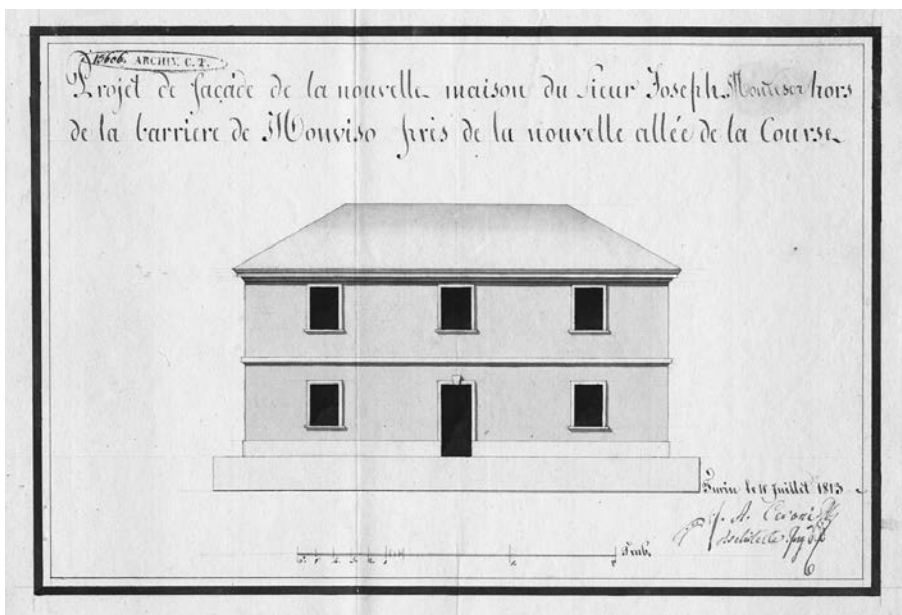 ARCHIV. C. T.
Projet de façade de la nouvelle maison du Sieur Joseph hors
de la barriere de Monviso près de la nouvelle allée de la Course
Turin le Juillet 1813
A. Ceroni
Trab.